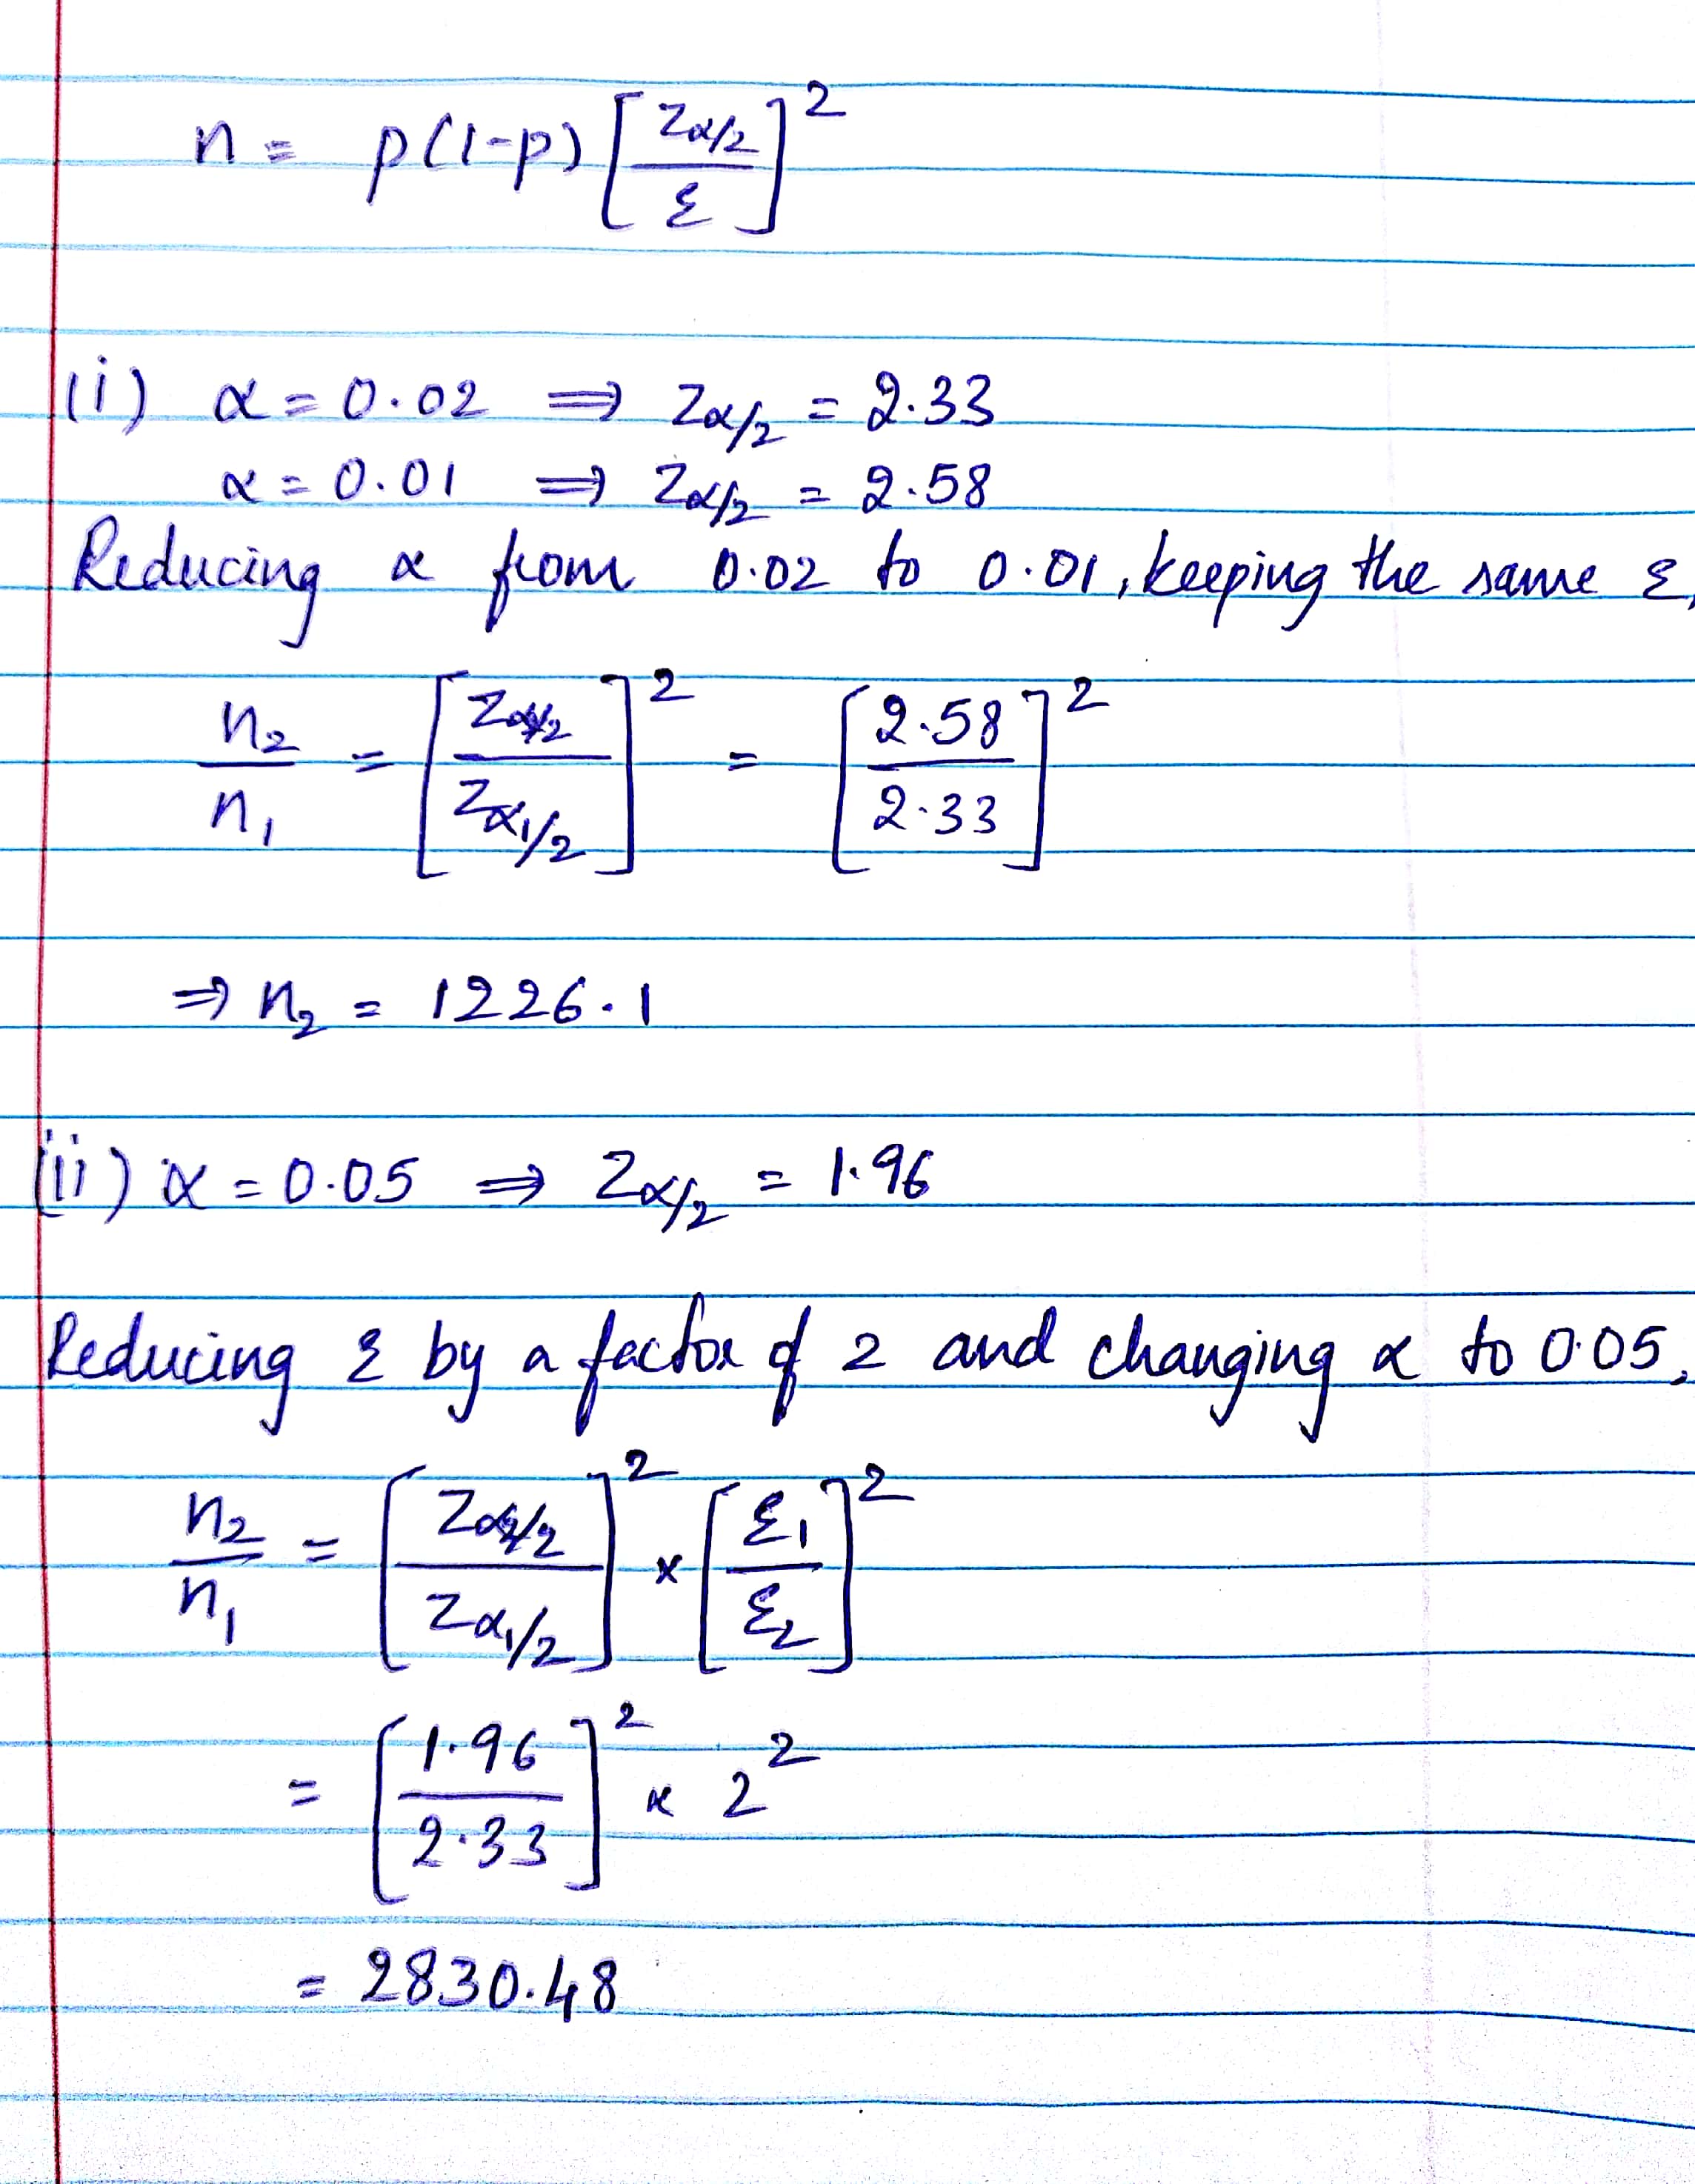 n = p(1-p) [ Zα/2 / ε ]²
(i) α = 0.02 ⇒ Zα/2 = 2.33
α = 0.01 ⇒ Zα/2 = 2.58
Reducing α from 0.02 to 0.01, keeping the same ε,
n₂ / n₁ = [ Zα₂/2 / Zα₁/2 ]² = [ 2.58 / 2.33 ]²
⇒ n₂ = 1226.1
(ii) α = 0.05 ⇒ Zα/2 = 1.96
Reducing ε by a factor of 2 and changing α to 0.05,
n₂ / n₁ = [ Zα₂/2 / Zα₁/2 ]² × [ ε₁ / ε₂ ]²
= [ 1.96 / 2.33 ]² × 2²
= 2830.48